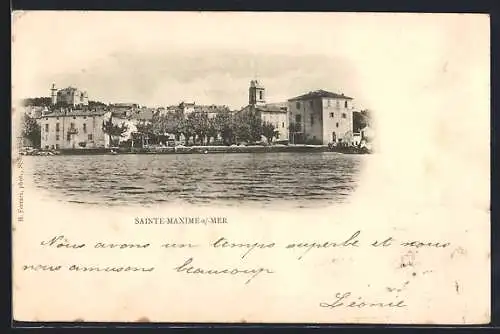 SAINTE-MAXIME s/-MER
Nous avons un temps superbe et nous
nous amusons beaucoup
Léonie
H. Ferrari, phot.